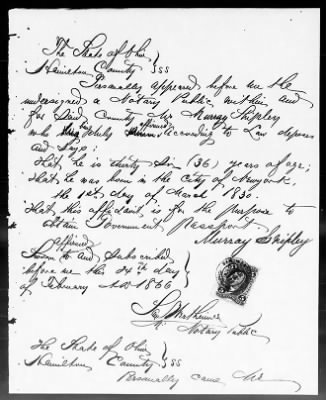 The State of Ohio }
Hamilton County } SSS
Personally appeared before me the
undersigned a Notary Public within and
for Said County Mr Murray Shipley
who being duly affirmed according to Law deposes
and Says:
That he is thirty Six (36) years of age;
that he was born in the City of New York
the 1st day of March 1830.
That this affidavit is for the purpose to
obtain Government Passport
Murray Shipley
affirmed
Sworn to and Subscribed
before me this 24th day
of February AD 1866
Notary Public
The State of Ohio }
Hamilton County } SSS
Personally came